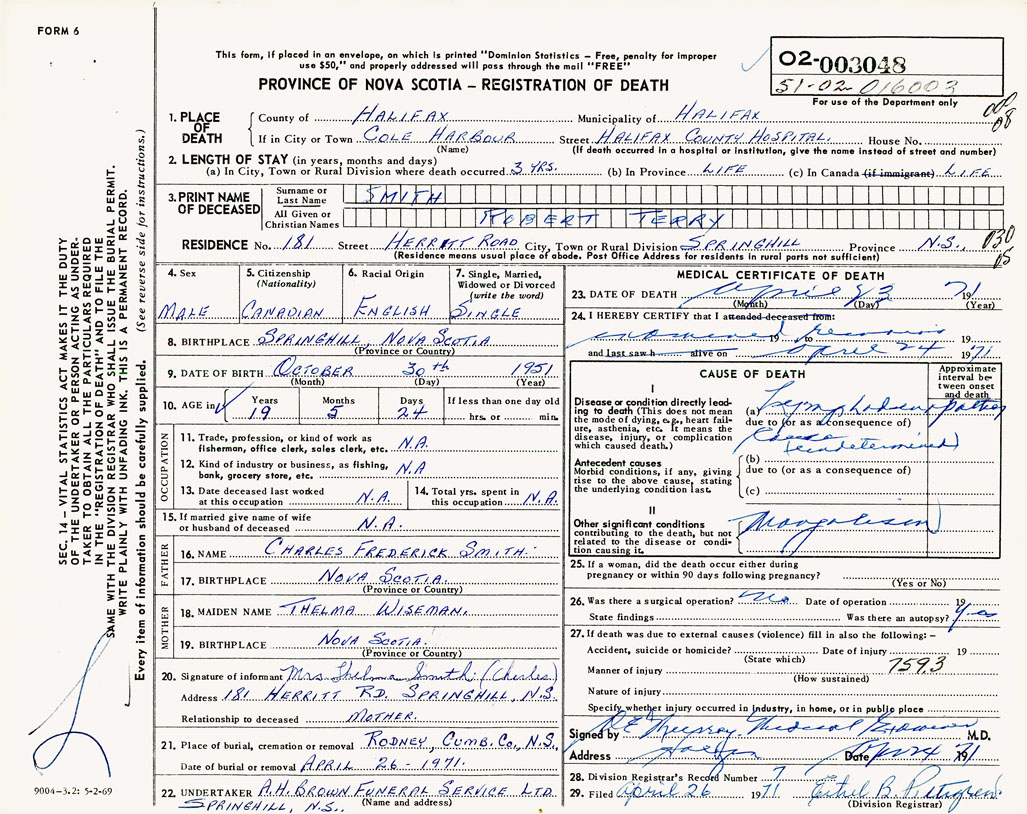 FORM 6
This form, if placed in an envelope, on which is printed "Dominion Statistics – Free, penalty for improper
use $50," and properly addressed will pass through the mail "FREE"
PROVINCE OF NOVA SCOTIA – REGISTRATION OF DEATH
02-003048
51-02-016003
For use of the Department only
1. PLACE OF DEATH
County of HALIFAX Municipality of HALIFAX
If in City or Town COLE HARBOUR Street HALIFAX COUNTY HOSPITAL. House No.
(Name) (If death occurred in a hospital or institution, give the name instead of street and number)
2. LENGTH OF STAY (in years, months and days)
(a) In City, Town or Rural Division where death occurred 3 YRS. (b) In Province LIFE (c) In Canada (if immigrant) LIFE
3. PRINT NAME OF DECEASED
Surname or Last Name SMITH
All Given or Christian Names ROBERT TERRY
RESIDENCE No. 181 Street HERRITT ROAD City, Town or Rural Division SPRINGHILL Province N.S.,
(Residence means usual place of abode. Post Office Address for residents in rural parts not sufficient)
4. Sex MALE
5. Citizenship (Nationality) CANADIAN
6. Racial Origin ENGLISH
7. Single, Married, Widowed or Divorced (write the word) SINGLE
8. BIRTHPLACE SPRINGHILL, NOVA SCOTIA
(Province or Country)
9. DATE OF BIRTH OCTOBER 30th 1951
(Month) (Day) (Year)
10. AGE in Years 19 Months 5 Days 24 If less than one day old hrs. or min.
OCCUPATION
11. Trade, profession, or kind of work as
fisherman, office clerk, sales clerk, etc. N.A.
12. Kind of industry or business, as fishing,
bank, grocery store, etc. N.A
13. Date deceased last worked
at this occupation N.A.
14. Total yrs. spent in
this occupation N.A.
15. If married give name of wife
or husband of deceased N.A.
FATHER
16. NAME CHARLES FREDERICK SMITH.
17. BIRTHPLACE NOVA SCOTIA.
(Province or Country)
MOTHER
18. MAIDEN NAME THELMA WISEMAN.
19. BIRTHPLACE NOVA SCOTIA.
(Province or Country)
20. Signature of informant Mrs. Thelma Smith (Charles)
Address 181 HERRITT RD. SPRINGHILL, N.S.
Relationship to deceased MOTHER.
21. Place of burial, cremation or removal RODNEY, CUMB. CO., N.S.,
Date of burial or removal APRIL 26 - 1971.
22. UNDERTAKER A.H. BROWN FUNERAL SERVICE LTD.
SPRINGHILL, N.S. (Name and address)
MEDICAL CERTIFICATE OF DEATH
23. DATE OF DEATH April 23 1971
(Month) (Day) (Year)
24. I HEREBY CERTIFY that I attended deceased from:
examined remains 19 to
and last saw h alive on April 24 1971
CAUSE OF DEATH
Approximate interval between onset and death
I
Disease or condition directly leading to death (This does not
mean the mode of dying, e.g., heart failure, asthenia, etc. It means the
disease, injury, or complication
which caused death.)
(a)
due to (or as a consequence of)
Cause undetermined)
Antecedent causes
Morbid conditions, if any, giving
rise to the above cause, stating
the underlying condition last.
(b)
due to (or as a consequence of)
(c)
II
Other significant conditions
contributing to the death, but not
related to the disease or condition causing it.
Mongolism
25. If a woman, did the death occur either during
pregnancy or within 90 days following pregnancy?
(Yes or No)
26. Was there a surgical operation? No Date of operation 19
State findings Was there an autopsy? Yes
27. If death was due to external causes (violence) fill in also the following: –
Accident, suicide or homicide? Date of injury 19
(State which)
Manner of injury 7593
(How sustained)
Nature of injury
Specify whether injury occurred in industry, in home, or in public place
Signed by Medical Examiner M.D.
Address Halifax Date Apr 24 1971
28. Division Registrar's Record Number 7
29. Filed April 26 1971 Ethel B.
(Division Registrar)
SEC. 14 – VITAL STATISTICS ACT MAKES IT THE DUTY
OF THE UNDERTAKER OR PERSON ACTING AS UNDERTAKER
TO OBTAIN ALL THE PARTICULARS REQUIRED
IN THE "REGISTRATION OF DEATH" AND TO FILE THE
SAME WITH THE DIVISION REGISTRAR WHO SHALL ISSUE THE BURIAL PERMIT.
WRITE PLAINLY WITH UNFADING INK. THIS IS A PERMANENT RECORD.
Every item of information should be carefully supplied. (See reverse side for instructions.)
9004-3.2: 5-2-69